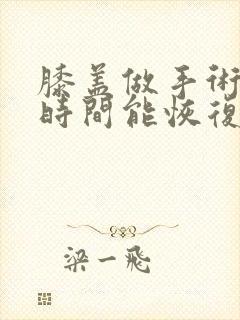 膝盖做手術
時間能恢復
梁一飛